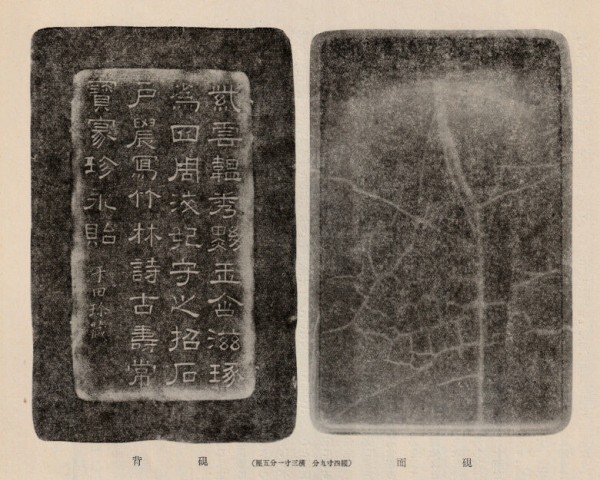 紫雲韞秀黝玉含滋琢
為田周茂妃字之招石
戶農寫竹林詩古壽常
寶家珍永貽
田
硯面
(縱四寸九分 橫三寸一分五厘)
硯背